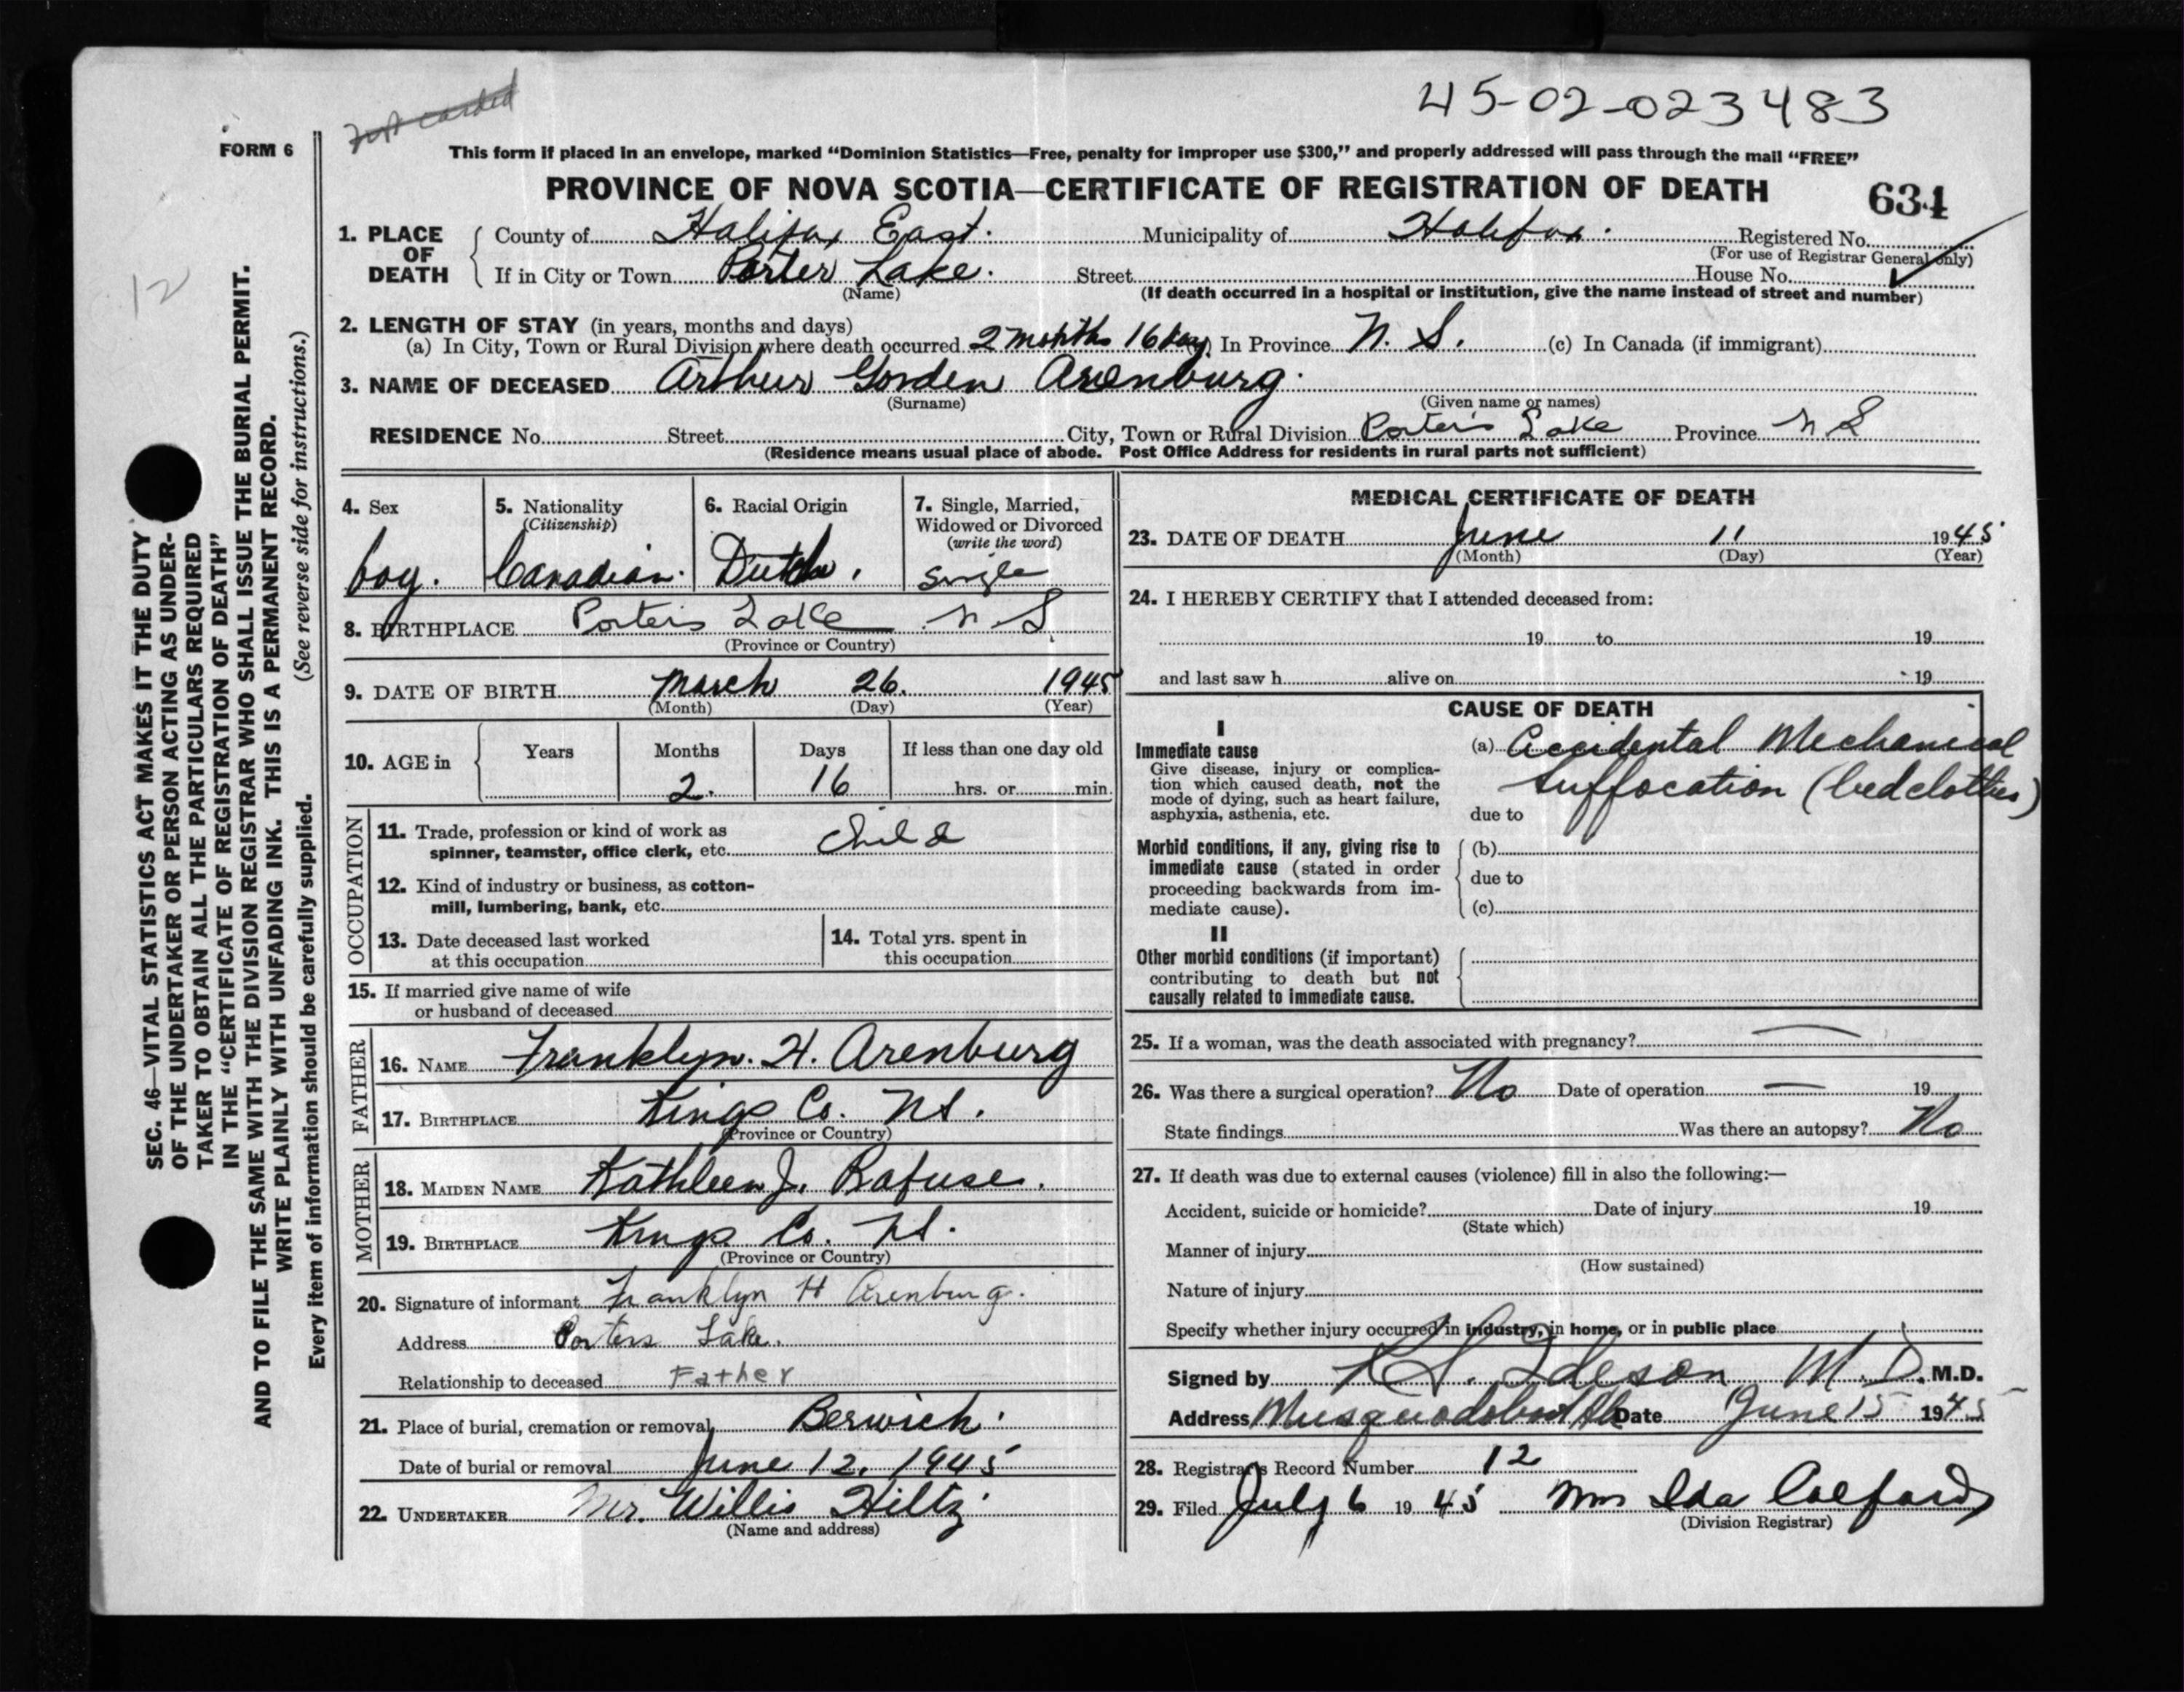 45-02-023483
Not carded
FORM 6
This form if placed in an envelope, marked “Dominion Statistics—Free, penalty for improper use $300,” and properly addressed will pass through the mail “FREE”
PROVINCE OF NOVA SCOTIA—CERTIFICATE OF REGISTRATION OF DEATH
634
12
SEC. 46—VITAL STATISTICS ACT MAKES IT THE DUTY
OF THE UNDERTAKER OR PERSON ACTING AS UNDER-
TAKER TO OBTAIN ALL THE PARTICULARS REQUIRED
IN THE “CERTIFICATE OF REGISTRATION OF DEATH”
AND TO FILE THE SAME WITH THE DIVISION REGISTRAR WHO SHALL ISSUE THE BURIAL PERMIT.
WRITE PLAINLY WITH UNFADING INK. THIS IS A PERMANENT RECORD.
Every item of information should be carefully supplied. (See reverse side for instructions.)
1. PLACE OF DEATH County of Halifax East. Municipality of Halifax. Registered No.
(For use of Registrar General only)
If in City or Town Porter Lake. Street House No.
(Name) (If death occurred in a hospital or institution, give the name instead of street and number)
2. LENGTH OF STAY (in years, months and days)
(a) In City, Town or Rural Division where death occurred 2 months 16 day In Province N. S. (c) In Canada (if immigrant)
3. NAME OF DECEASED Arthur Gorden Arenburg.
(Surname) (Given name or names)
RESIDENCE No. Street City, Town or Rural Division Porters Lake Province N S
(Residence means usual place of abode. Post Office Address for residents in rural parts not sufficient)
4. Sex
boy.
5. Nationality
(Citizenship)
Canadian.
6. Racial Origin
Dutch.
7. Single, Married,
Widowed or Divorced
(write the word)
Single
8. BIRTHPLACE Porters Lake N S.
(Province or Country)
9. DATE OF BIRTH March 26. 1945
(Month) (Day) (Year)
10. AGE in Years Months Days If less than one day old
2. 16 hrs. or min.
OCCUPATION
11. Trade, profession or kind of work as
spinner, teamster, office clerk, etc. Child
12. Kind of industry or business, as cotton-
mill, lumbering, bank, etc.
13. Date deceased last worked
at this occupation
14. Total yrs. spent in
this occupation
15. If married give name of wife
or husband of deceased
FATHER
16. NAME Franklyn. H. Arenburg
17. BIRTHPLACE Kings Co. NS.
(Province or Country)
MOTHER
18. MAIDEN NAME Kathleen J. Rafuse.
19. BIRTHPLACE Kings Co. NS.
(Province or Country)
20. Signature of informant Franklyn H Arenburg.
Address Porters Lake.
Relationship to deceased Father
21. Place of burial, cremation or removal Berwick.
Date of burial or removal June 12. 1945
22. UNDERTAKER Mr. Willis Hiltz
(Name and address)
MEDICAL CERTIFICATE OF DEATH
23. DATE OF DEATH June 11 1945
(Month) (Day) (Year)
24. I HEREBY CERTIFY that I attended deceased from:
19 to 19
and last saw h alive on 19
CAUSE OF DEATH
I
Immediate cause
Give disease, injury or complica-
tion which caused death, not the
mode of dying, such as heart failure,
asphyxia, asthenia, etc.
(a) Accidental Mechanical
Suffocation (bedclothes)
due to
Morbid conditions, if any, giving rise to
immediate cause (stated in order
proceeding backwards from im-
mediate cause).
(b)
due to
(c)
II
Other morbid conditions (if important)
contributing to death but not
causally related to immediate cause.
25. If a woman, was the death associated with pregnancy? —
26. Was there a surgical operation? No Date of operation — 19
State findings Was there an autopsy? No
27. If death was due to external causes (violence) fill in also the following:—
Accident, suicide or homicide? Date of injury 19
(State which)
Manner of injury
(How sustained)
Nature of injury
Specify whether injury occurred in industry, in home, or in public place
Signed by M.D. M.D.
Address Date June 15 1945
28. Registrar's Record Number 12
29. Filed July 6 1945 Mrs Ida
(Division Registrar)